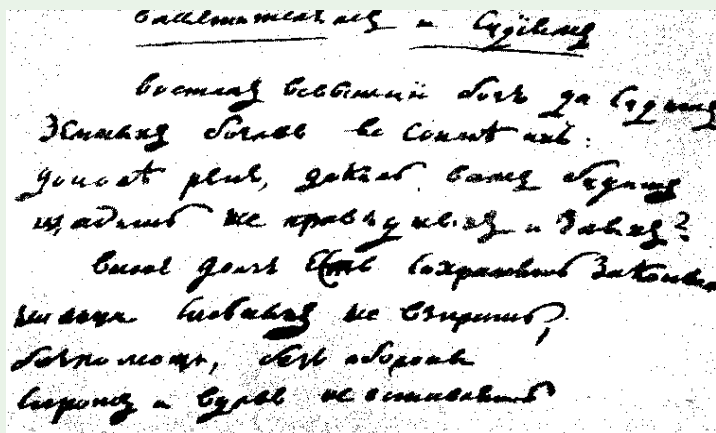 властителямъ и Судіямъ
Восталъ всевышній богъ да Судитъ
Земныхъ боговъ во Сонмѣ ихъ:
доколѣ рекъ, доколь вамъ будетъ
щадить не праведныхъ и злыхъ?
вашъ долгъ Есть Сохранять Законы
на лица Сильныхъ не взирать,
безъ помощи, безъ обороны
Сиротъ и вдовъ не оставлять